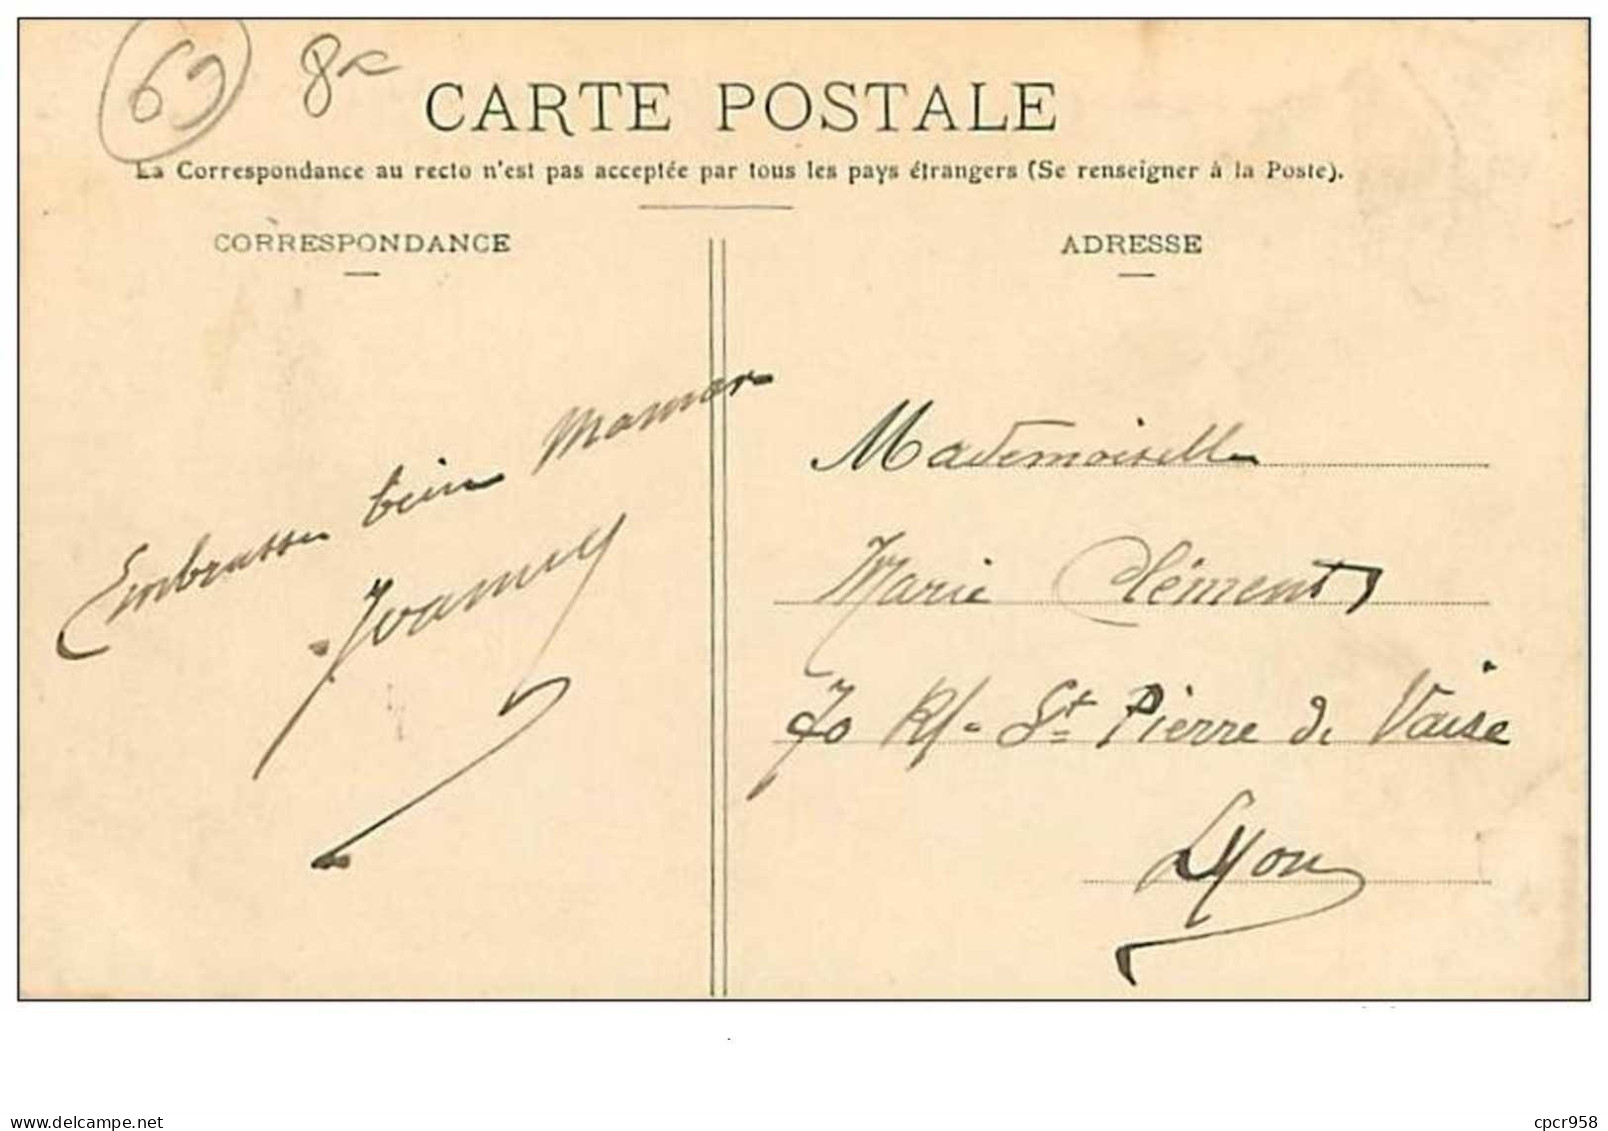 69 8€
CARTE POSTALE
La Correspondance au recto n'est pas acceptée par tous les pays étrangers (Se renseigner à la Poste).
CORRESPONDANCE
Embrasse bein Maman
Joanny
ADRESSE
Mademoiselle
Marie Clément
70 St Pierre de Vaise
Lyon
www.delcampe.net
cpcr958